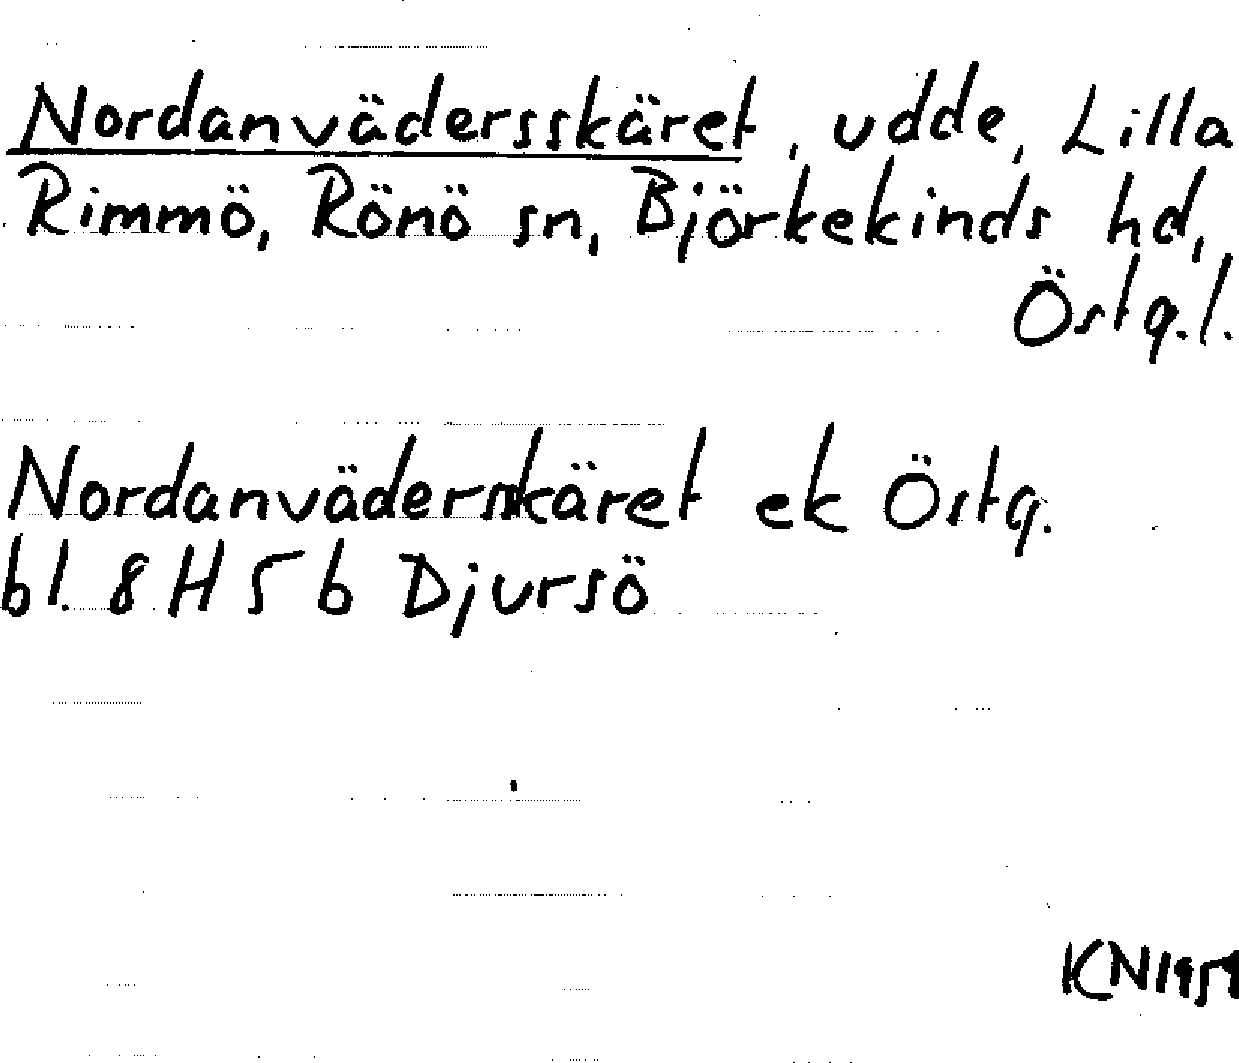 Nordanvädersskäret, udde, Lilla
Rimmö, Rönö sn, Björkekinds hd,
Östg.l.
Nordanväderskäret ek Östg.
bl. 8 H 5 b Djursö